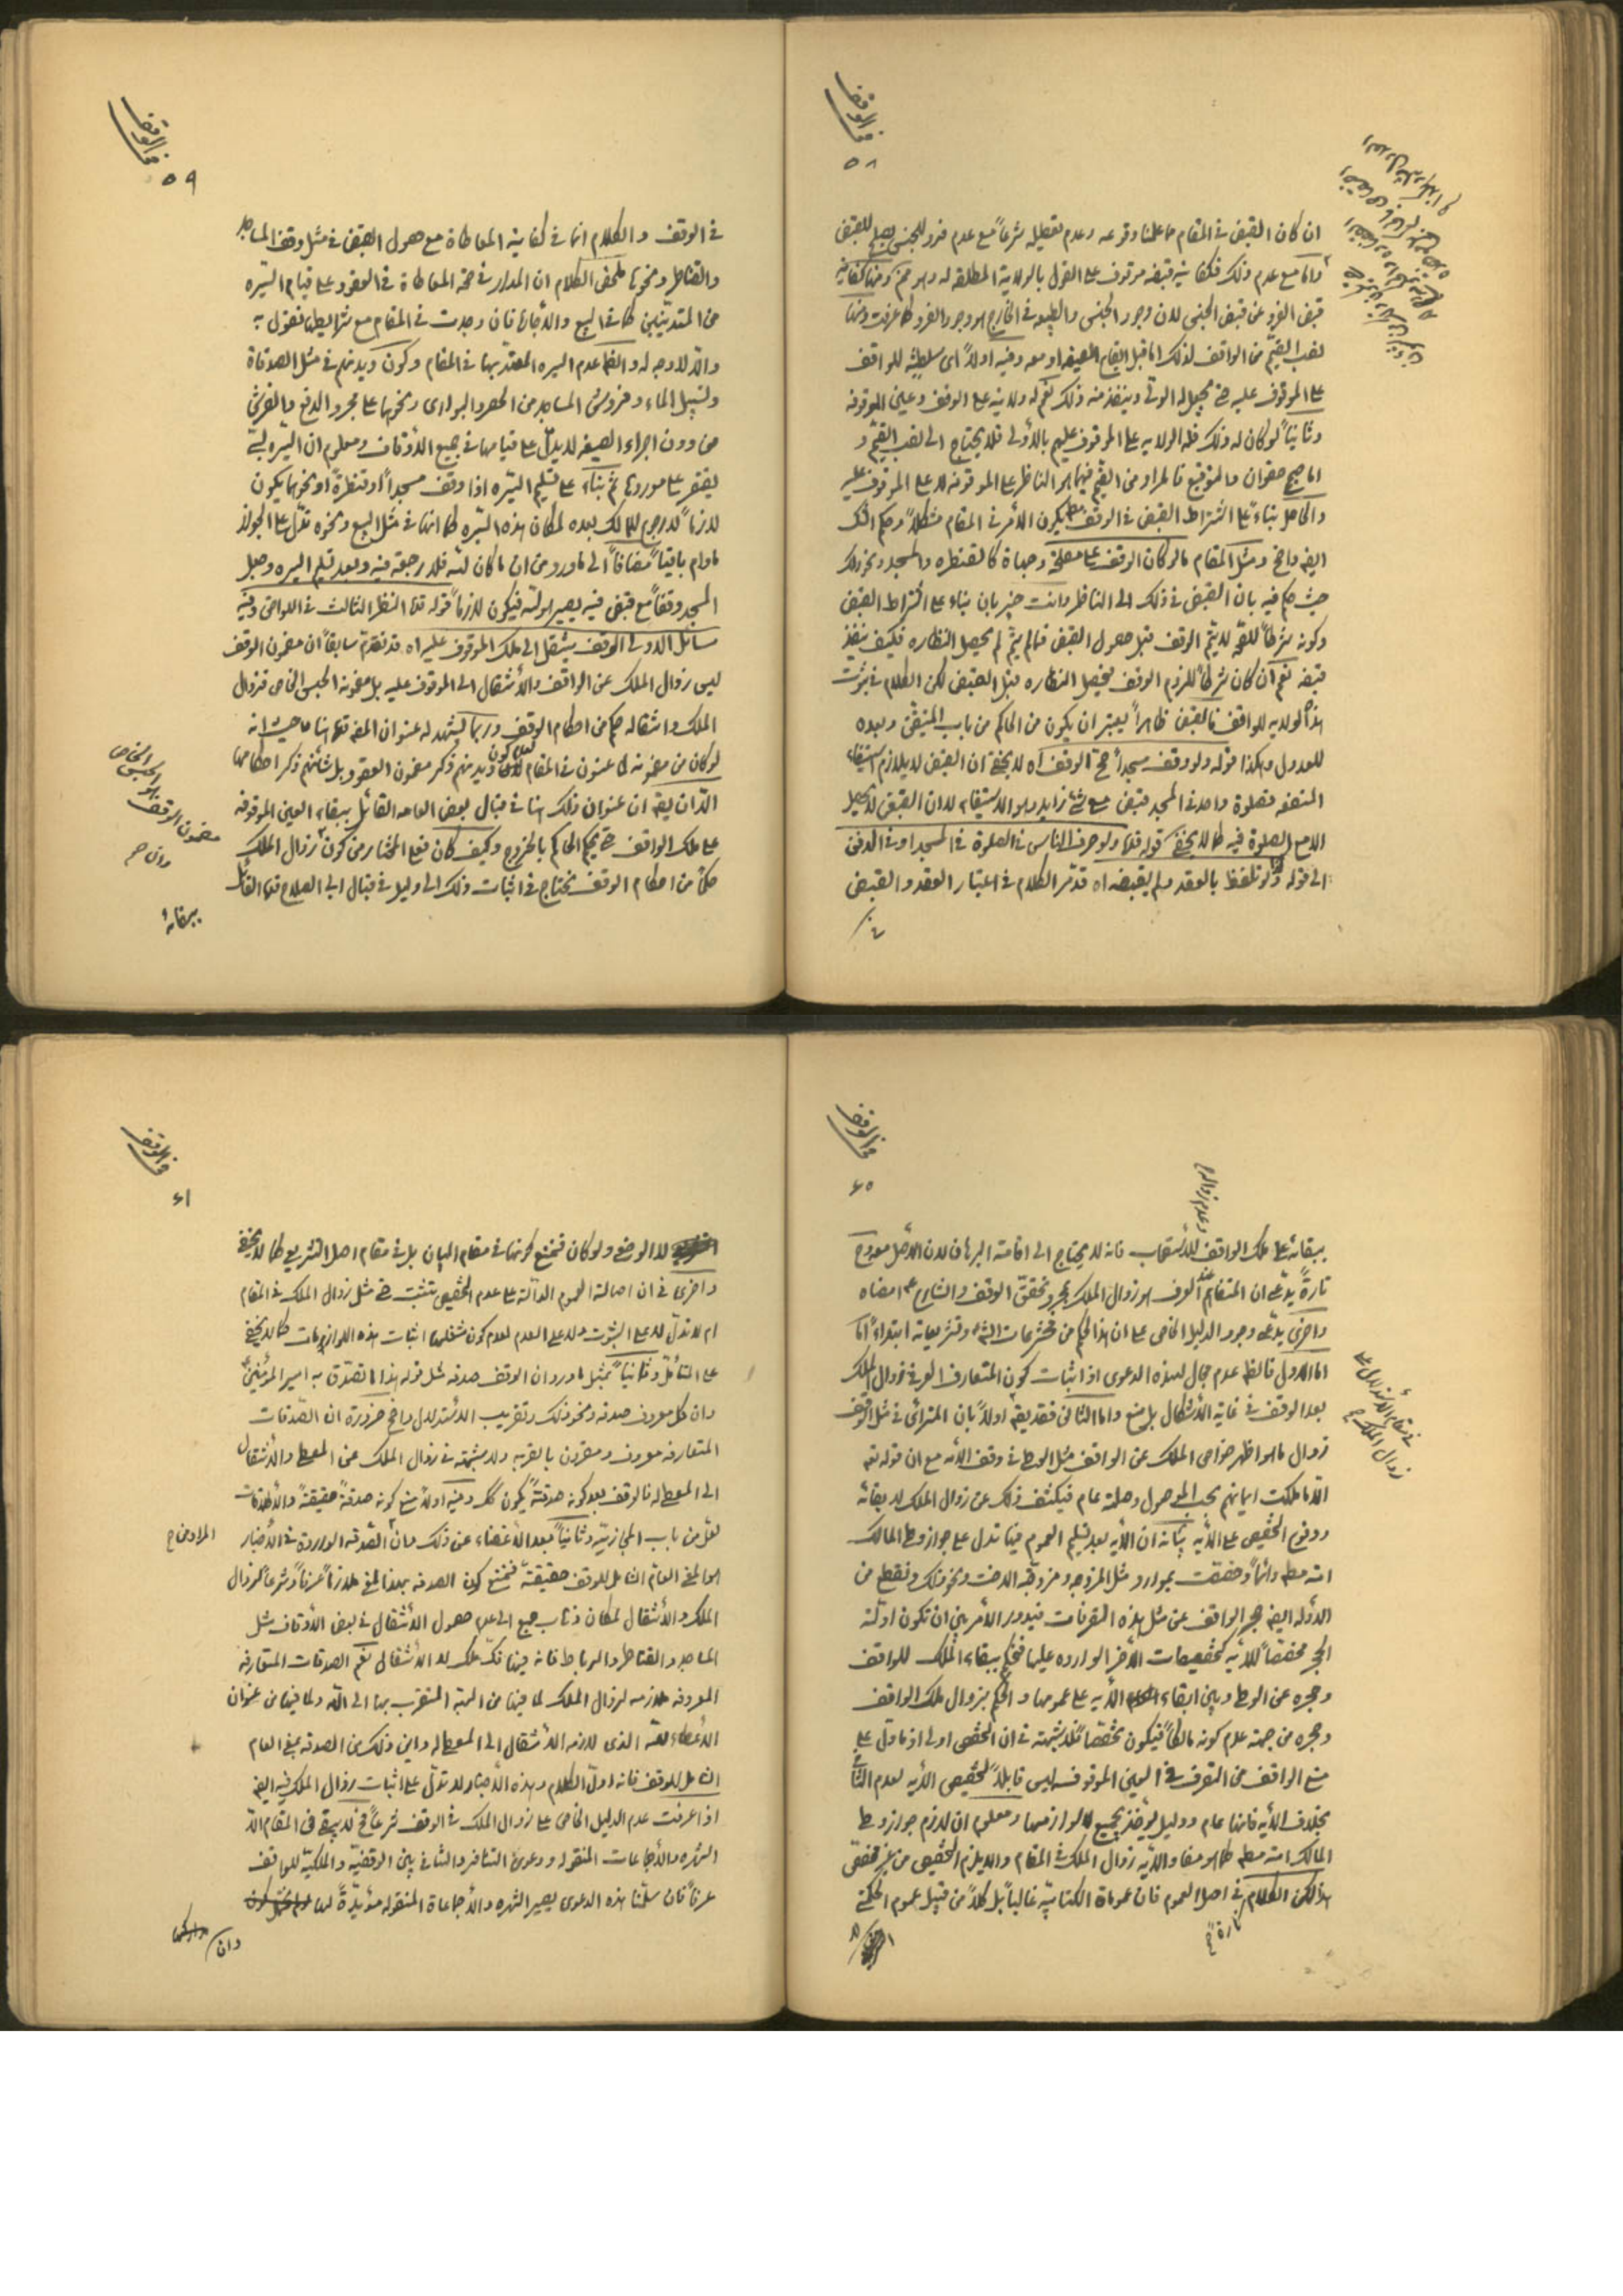 في الوقف
٥٨
ان كان القبض في المقام ما علمنا وقوعه وعدم تفصيله شرعاً مع عدم فرد للجنس يصلح للقبض
واما مع عدم ذلك فكفاية قبضه موقوف على القول بالولاية المطلقة له وهو ممنوع ومنها كفاية
قبض الفرد عن قبض الجنس لان وجود الجنس والطبيعه في الخارج هو وجود الفرد كما عرفت ومنها
نصب القيّم من الواقف لذلك اما قبل ايقاع الصيغه او معه وفيه اولاً اى سلطنة للواقف
على الموقوف عليه حتى يجعل له الولى وينفذ منه ذلك نعم له ولاية على الوقف وعين الموقوفه
وثانياً لو كان له ذلك فله الولايه على الموقوف عليهم بالأولى فلا يحتاج الى نصب القيّم و
والحاصل بناءً على اشتراط القبض في الوقف يكون الأمر في المقام مشكلاً وحكم
ايضه واضح ومثل المقام ما لو كان الوقف على مصلحة وجهاة كالقنطره والمسجد ونحو ذلك
حيث حكم فيه بان القبض في ذلك الى الناظر وانت خبير بان بناء على اشتراط القبض
وكونه شرطاً للصحّه لا يتم الوقف قبل حصول القبض فما لم يتم لم يحصل النظاره فكيف ينفذ
قبضه نعم ان كان شرطاً للزوم الوقف فيحصل النظاره قبل القبض لكن الكلام في ثبوت
هذه الولايه للواقف فالقبض ظاهراً يعتبر ان يكون من الحاكم من باب المتيقّن وبعده
للعدول وهكذا قوله ولو وقف مسجداً صح الوقف اه لا يخفى ان القبض لا يلازم استيفاء
المنفعه فصلوة واحد في المسجد قبض مع شئ زايد وهو الاستيفاء لا ان القبض لا يحصل
الا مع الصلوة فيه كما لا يخفى قوله قده ولو صرف الناس في الصلوة في المسجد او في الدفن
الى قوله ولو تلفظ بالعقد ولم يقبضه اه قد مر الكلام في اعتبار العقد والقبض
في الوقف
٥٩
في الوقف والكلام انما في كفاية المعاطاة مع حصول القبض في مثل وقف المساجد
والقناطر ونحوها ملخص الكلام ان المدار في صحة المعاطاة في العقود على قيام السّيره
من المتديّنين كما في البيع والاجاره فان وجدت في المقام مع شرايطها فنقول به
والّا فلا وجه له والظاهر عدم السيره المعتدّ بها في المقام وكون ديدنهم في مثل الصدقاة
وتسبيل الماء وفروش المساجد من الحصر والبوارى ونحوها على مجرد الدفع والفرش
من دون اجراء الصيغه لا يدل على قيامها في جميع الأوقاف ومعلوم ان السّيره لبّية
يقتصر على موردها ثم بناءً على تسليم السّيره اذا وقف مسجداً او قنطرةً او نحوهما يكون
لازماً لا رجوع للمالك بعده لمكان هذه السّيره كما انها في مثل البيع ونحوه تدلّ على الجواز
مادام باقياً مضافاً الى ما ورد من ان ما كان لله فلا رجعة فيه وبعد تسليم السيره وجعل
المسجد وقفاً مع قبض فيه يصير لله فيكون لازماً قوله قده النظر الثالث في اللواحق وفيه
مسائل الاولى الوقف ينتقل الى ملك الموقوف عليه اه قد تقدّم سابقاً ان مضمون الوقف
ليس زوال الملك عن الواقف والأنتقال الى الموقوف عليه بل مضمونه الحبس الخاص فزوال
الملك وانتقاله حكم من احكام الوقف وربما يشهد له عنوان المصه قده هنا ما حيث انه
لو كان من مضمونه لما عنون في المقام لعدم كون ديدنهم ذكر مضمون العقود بل شأنهم ذكر احكامها
الّا ان يقه ان عنوان ذلك هنا في قبال بعض العامه القائل ببقاء العين الموقوفه
على ملك الواقف حتى يحكم الحاكم بالخروج وكيف كان فعلى المختار من كون زوال الملك
حكماً من احكام الوقف نحتاج في اثبات ذلك الى دليل في قبال ابى الصلاح قده القائل
ببقائه
مضمون الوقف هو الحبس الخاص
وان صح
في الوقف
٦٠
ببقائه على ملك الواقف للاستصحاب فانه لا يحتاج الى اقامة البرهان لان الأصل معه وح
تارةً يدّعى ان المتفاهم عند العرف هو زوال الملك بمجرد تحقّق الوقف والشارع امضاه
واخرى يدّعى وجود الدليل الخاص على ان هذا الحكم من مخترعات الشرع وتشريعاته ابتداءً
اما الاول فالظاهر عدم مجال لهذه الدعوى اذ اثبات كون المتعارف العرفى زوال الملك
بعد الوقف في غاية الأشكال بل منع واما الثانى فقد يقه اولاً بان المترائى في مثل الوقف
زوال ما هو اظهر خواص الملك عن الواقف مثل الوطى في وقف الأمه مع ان قوله تعه
الّا ما ملكت ايمانهم بحسب الموصول وصلته عام فيكشف ذلك عن زوال الملك لا بقائه
ووقوع التخصيص على الأيه بيانه ان الأيه بعد تسليم العموم فيها تدل على جواز وطى المالك
امته مطه دائماً وخصّصت بموارد مثل المزوجه ومزوّجة الاخت ونحو ذلك ونقطع من
الأدله ايضه حجر الواقف عن مثل هذه التصرفات فيدور الأمر بين ان تكون ادلّة
الحجر مخصّصاً للأيه كتخصيصات الأخر الوارده عليها فنحكم ببقاء الملك للواقف
وحجره عن الوطى وبين ابقاء الأيه على عمومها والحكم بزوال ملك الواقف
وحجره من جهة عدم كونه مالكاً فيكون تخصّصاً فلا شبهة في ان التخصص اولى اذ ما دل على
منع الواقف من التصرف في العين الموقوفه ليس قابلاً لتخصيص الأيه لعدم
بخلاف الأيه فانها عام ودليل يؤخذ بجميع لوازمها ومعلوم ان لازم جواز وطى
المالك امته مطه كما هو مفاد الأيه زوال الملك في المقام والا يلزم التخصيص من غير مخصّص
هذا لكن الكلام في اصل العموم فان عموماة الكتابيّه غالباً بل كلاً من قبيل عموم الحكمتى
تارة
في مقام الأستدلال على
زوال الملك صح
في الوقف
٦١
لا الوضعى ولو كان فنمنع كونها في مقام البيان بل في مقام اصل التشريع كما لا يخفى
واخرى في ان اصالة العموم الدالّة على عدم التخصيص تثبت حتى مثل زوال الملك في المقام
ام لا تدلّ لا على الثبوت ولا على العدم لعدم كون شغلها اثبات هذه اللوازمات كما لا يخفى
على المتأمّل وثانياً بمثل ما ورد ان الوقف صدقه مثل قوله هذا ما تصدّق به امير المؤمنين
وان كل معروف صدقه ونحو ذلك وتقريب الأستدلال واضح ضرورة ان الصّدقات
المتعارفه معروف ومقرون بالقربه ولا شبهة في زوال الملك عن المعطى والأنتقال
الى المعطى له فالوقف بعد كونه صدقةً يكون كك وفيه اولاً منع كونه صدقةً حقيقةً والأطلاقات
لعلّ من باب المجازيّه وثانياً بعد الأغضاء عن ذلك فان الصّدقه الواردة في الأخبار
المراد من صح
هو المعنى العام الشامل للوقف حقيقةً فنمنع كون الصدقه بهذا المعنى ملازماً عرفاً وشرعاً لزوال
الملك والأنتقال لمكان ذهاب جمع الى عدم حصول الأنتقال في بعض الأوقاف مثل
المساجد والقناطر والرباط فانه فيها فكّ ملك لا انتقال نعم الصدقات المتعارفه
المعروفه ملازمه لزوال الملك لما فيها من الهبة المتقرّب بها الى الله ولما فيها من عنوان
الأعطاء لله الذى لازمه الأنتقال الى المعطى له واين ذلك من الصدقه بمعنى العام
الشامل للوقف فانه اول الكلام وهذه الأخبار لا تدلّ على اثبات زوال الملك فيه ايضه
اذا عرفت عدم الدليل الخاص على زوال الملك في الوقف شرعاً فح لا يبقى في المقام الّا
الشهره والأجماعات المنقوله ودعوى التنافر والتنافى بين الوقفيّة والملكيّة للواقف
عرفاً فان سلّمنا هذه الدعوى يصير الشهره والأجماعاة المنقوله مؤيّدةً لها
وان